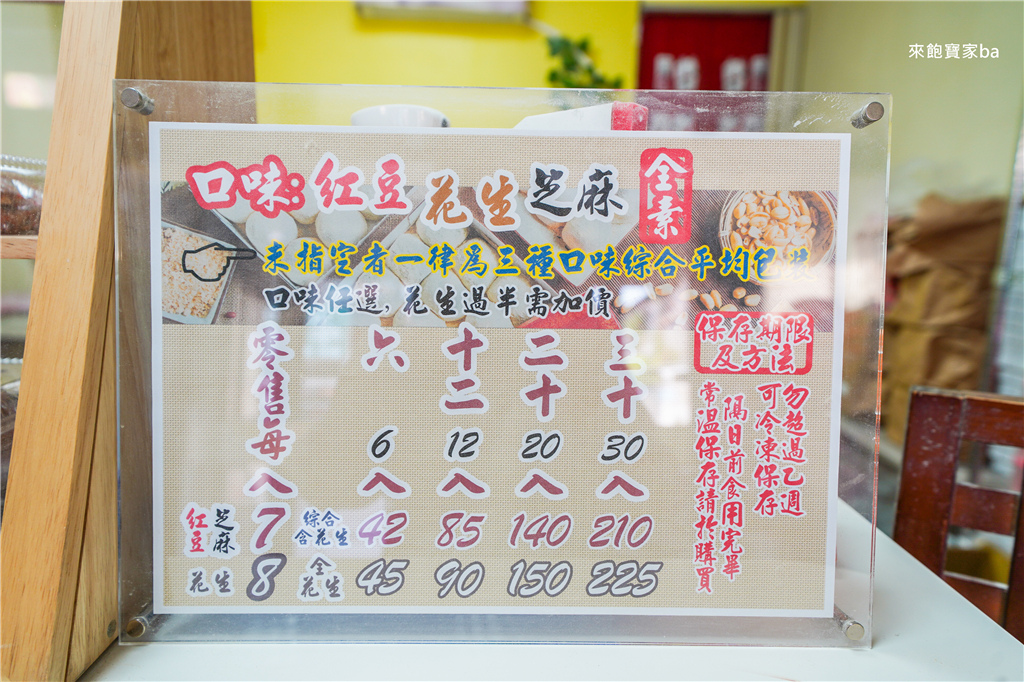 來飽寶家ba
口味:紅豆 花生 芝麻 全素
未指定者一律為三種口味綜合平均包裝
口味任選, 花生過半需加價
零售每入
六 6入
十二 12入
二十 20入
三十 30入
紅豆 芝麻 7 綜合含花生 42 85 140 210
花生 8 全花生 45 90 150 225
保存期限
及方法
常溫保存請於購買
隔日前食用完畢
可冷凍保存
勿超過乙週